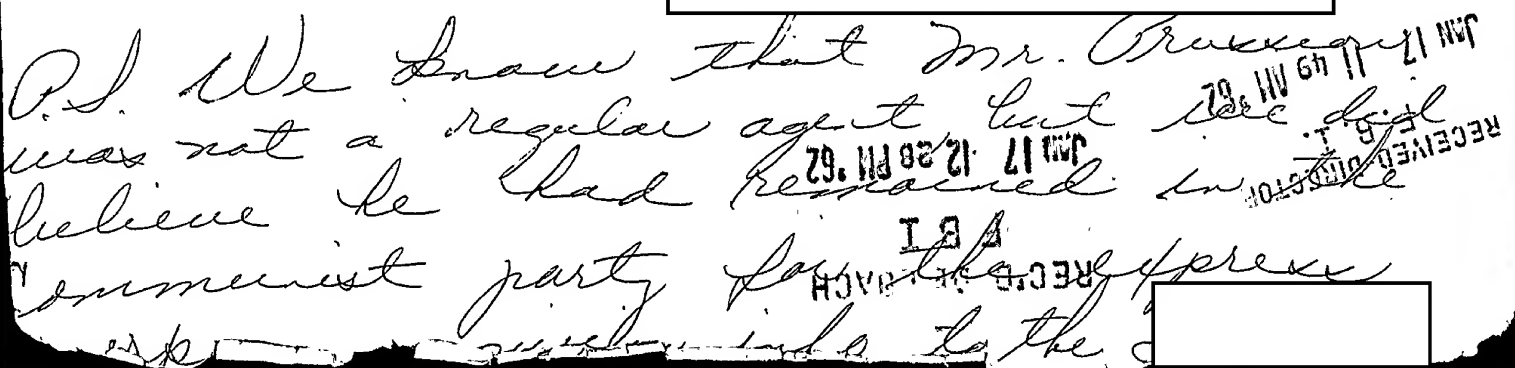 P.S. We know that Mr. Prussion
was not a regular agent, but we did
believe he had remained in the
Communist party for the express
to the
JAN 17 11 49 AM '62
RECEIVED DIRECTOR
F.B.I.
JAN 17 12 28 PM '62
F B I
REC'D